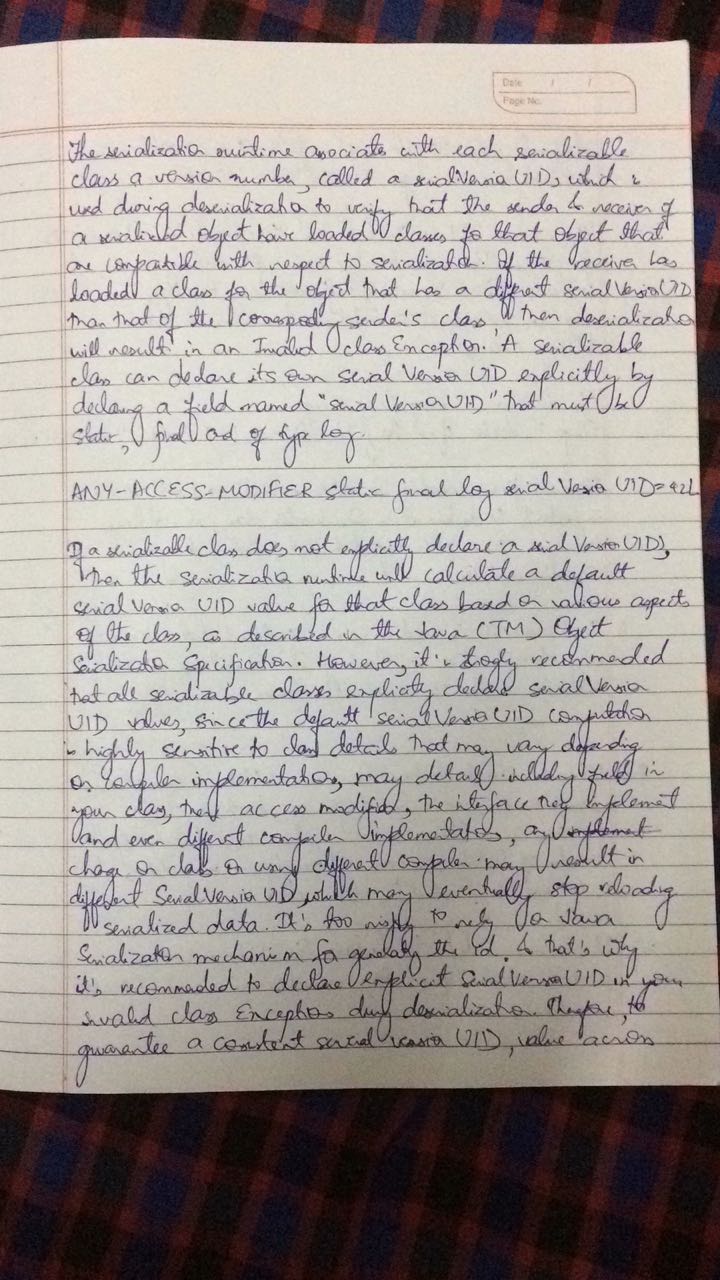 Date / /
Page No.
The serialization runtime associates with each serializable
class a version number, called a serialVersionUID, which is
used during deserialization to verify that the sender & receiver of
a serialized object have loaded classes for that object that
are compatible with respect to serialization. If the receiver has
loaded a class for the object that has a different serialVersionUID
than that of the corresponding sender's class, then deserialization
will result in an Invalid class Exception. A serializable
class can declare its own serial Version UID explicitly by
declaring a field named "serial Version UID" that must be
static, final and of type long.
ANY-ACCESS-MODIFIER static final long serial Version UID = 42L
If a serializable class does not explicitly declare a serial Version UID,
then the serialization runtime will calculate a default
serial Version UID value for that class based on various aspects
of the class, as described in the Java (TM) Object
Serialization Specification. However, it is strongly recommended
that all serializable classes explicitly declare serial Version
UID values, since the default serial Version UID computation
is highly sensitive to class details that may vary depending
on compiler implementations, may details including field in
your class, their access modifier, the interface they implement
and even different compiler implementations, any implement
change on class or using different compiler may result in
different Serial Version UID, which may eventually stop reloading
serialized data. It's too risky to rely on Java
Serialization mechanism for generating the id, & that's why
it's recommended to declare explicit Serial Version UID in your
invalid class Exceptions during deserialization. Therefore, to
guarantee a consistent serial version UID, value across